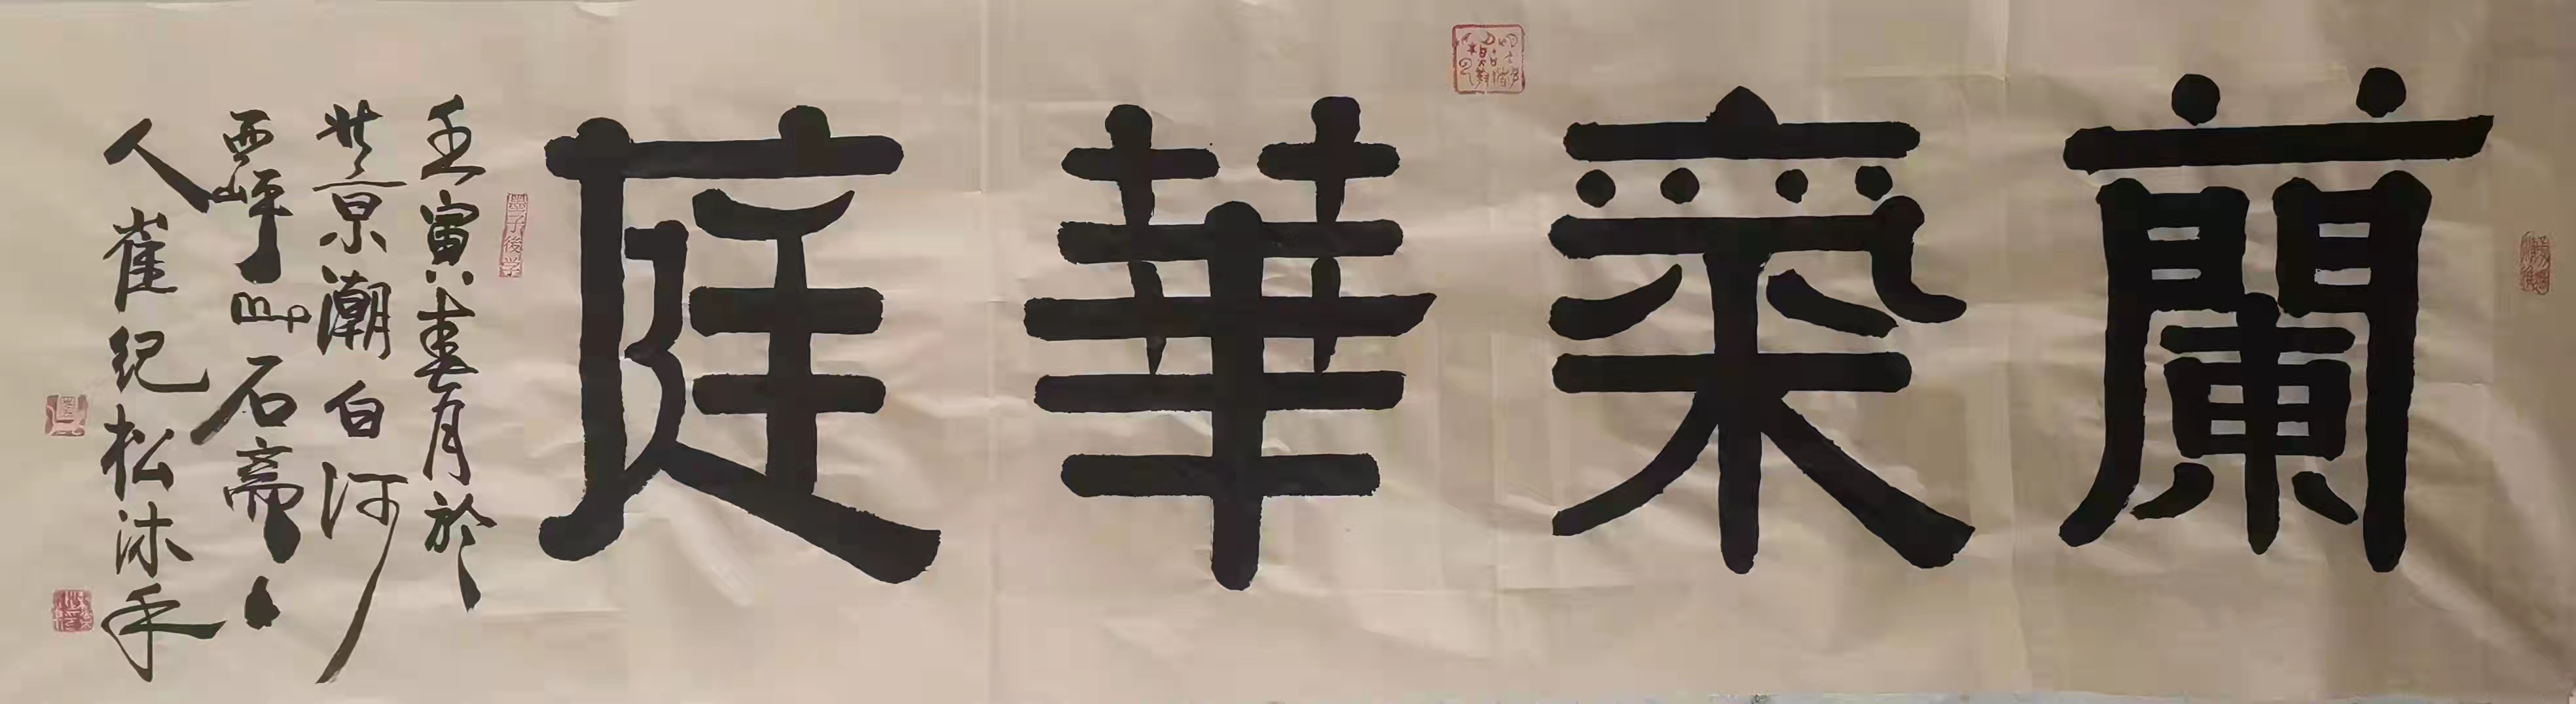 蘭氣華庭
壬寅春月於
北京潮白河
西岸石齋
人崔纪松沐手
墨子後学